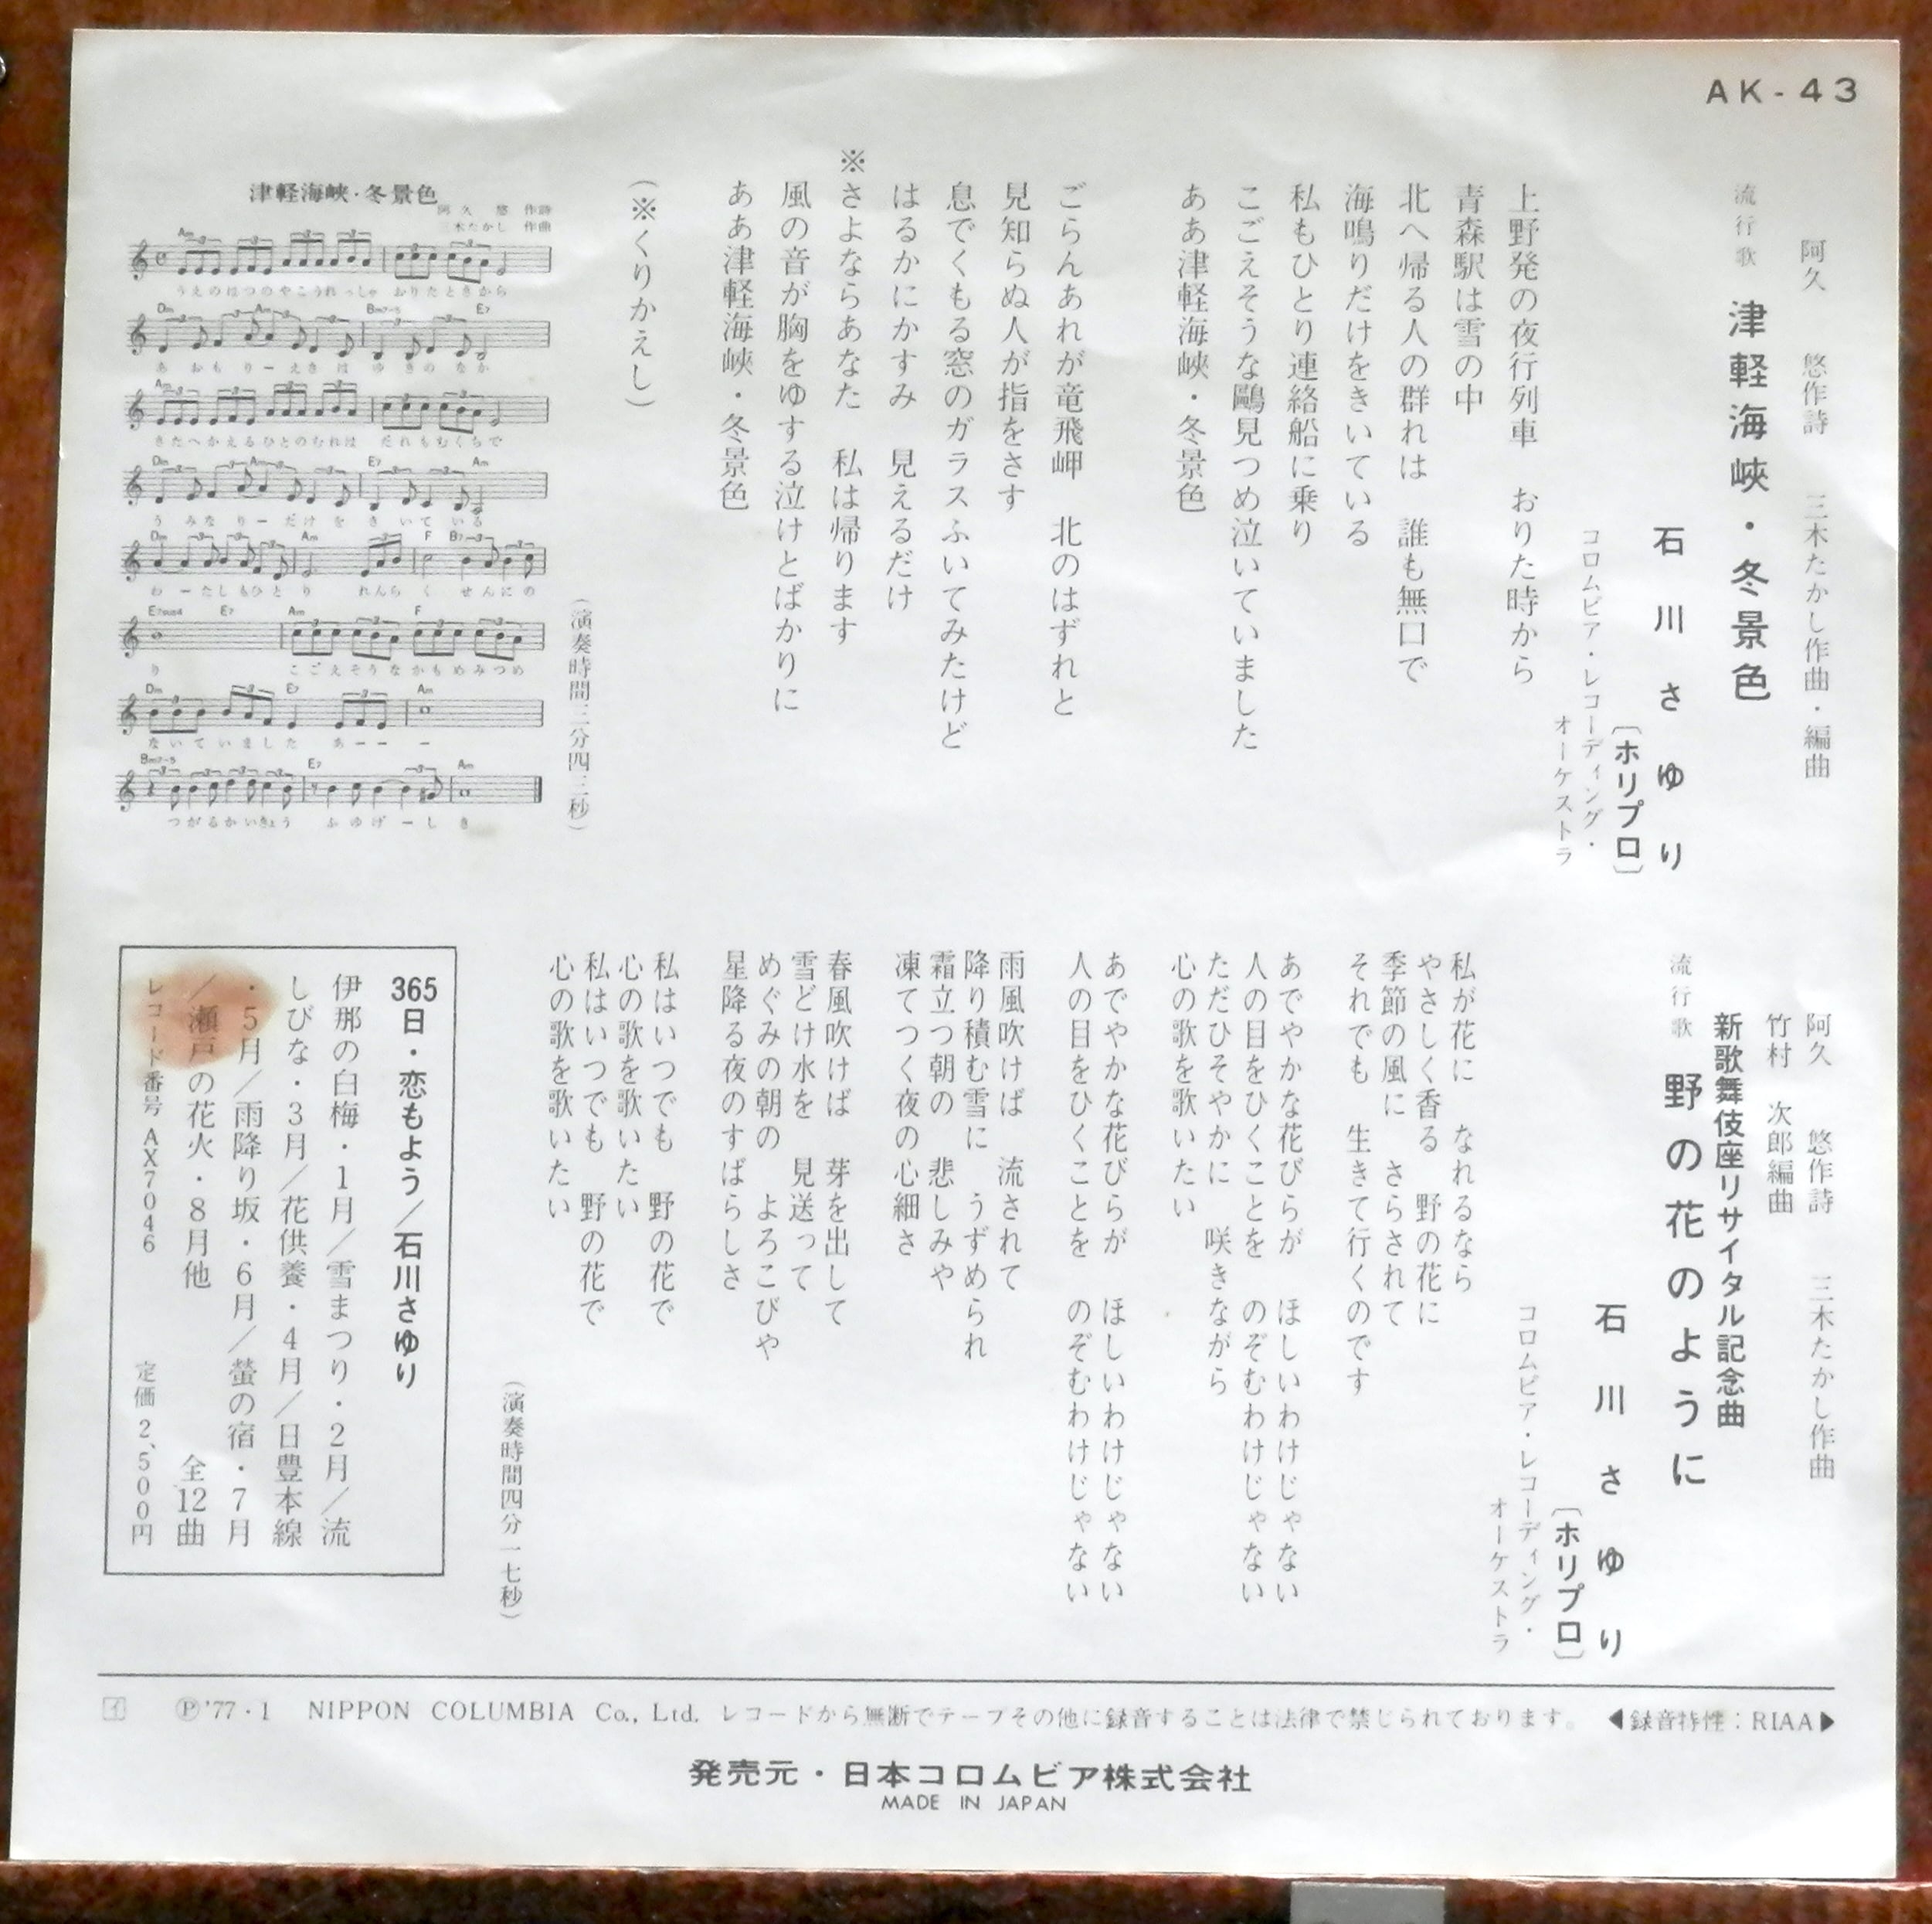 AK-43
阿久 悠作詩 三木たかし作曲・編曲
流行歌 津軽海峡・冬景色
石川さゆり
〔ホリプロ〕
コロムビア・レコーディング・
オーケストラ
上野発の夜行列車 おりた時から
青森駅は雪の中
北へ帰る人の群れは 誰も無口で
海鳴りだけをきいている
私もひとり連絡船に乗り
こごえそうな鷗見つめ泣いていました
ああ津軽海峡・冬景色
ごらんあれが竜飛岬 北のはずれと
見知らぬ人が指をさす
息でくもる窓のガラスふいてみたけど
はるかにかすみ 見えるだけ
※さよならあなた 私は帰ります
風の音が胸をゆする泣けとばかりに
ああ津軽海峡・冬景色
(※くりかえし)
(演奏時間三分四三秒)
津軽海峡・冬景色
阿久 悠 作詩
三木たかし 作曲
Am
うえのはつのやこうれっしゃ おりたときから
Dm Am Bm7-5 E7
あ おも りー えき は ゆ きの なか
Am
きたへかえるひとのむれは だれもむくちで
Dm Am E7 Am
う みな りー だけ を き いて いる
Dm Am F B7
わ ーたし もひ と り れんら く せ んに の
E7sus4 E7 Am F
り こごえそうなかもめみつめ
Dm E7 Am
ないていました あーー ー
Bm7-5 E7 Am
つがるかいきょう ふ ゆ げ ーし き
阿久 悠作詩 三木たかし作曲
竹村 次郎編曲
新歌舞伎座リサイタル記念曲
流行歌 野の花のように
石川さゆり
〔ホリプロ〕
コロムビア・レコーディング・
オーケストラ
私が花に なれるなら
やさしく香る 野の花に
季節の風に さらされて
それでも 生きて行くのです
あでやかな花びらが ほしいわけじゃない
人の目をひくことを のぞむわけじゃない
ただひそやかに 咲きながら
心の歌を歌いたい
あでやかな花びらが ほしいわけじゃない
人の目をひくことを のぞむわけじゃない
雨風吹けば 流されて
降り積む雪に うずめられ
霜立つ朝の 悲しみや
凍てつく夜の心細さ
春風吹けば 芽を出して
雪どけ水を 見送って
めぐみの朝の よろこびや
星降る夜のすばらしさ
私はいつでも 野の花で
心の歌を歌いたい
私はいつでも 野の花で
心の歌を歌いたい
(演奏時間四分一七秒)
365日・恋もよう／石川さゆり
伊那の白梅・1月／雪まつり・2月／流
しびな・3月／花供養・4月／日豊本線
・5月／雨降り坂・6月／螢の宿・7月
／瀬戸の花火・8月他 全12曲
レコード番号 AX7046 定価2,500円
イ Ⓟ'77・1 NIPPON COLUMBIA Co., Ltd. レコードから無断でテープその他に録音することは法律で禁じられております。 ◀録音特性：RIAA▶
発売元・日本コロムビア株式会社
MADE IN JAPAN